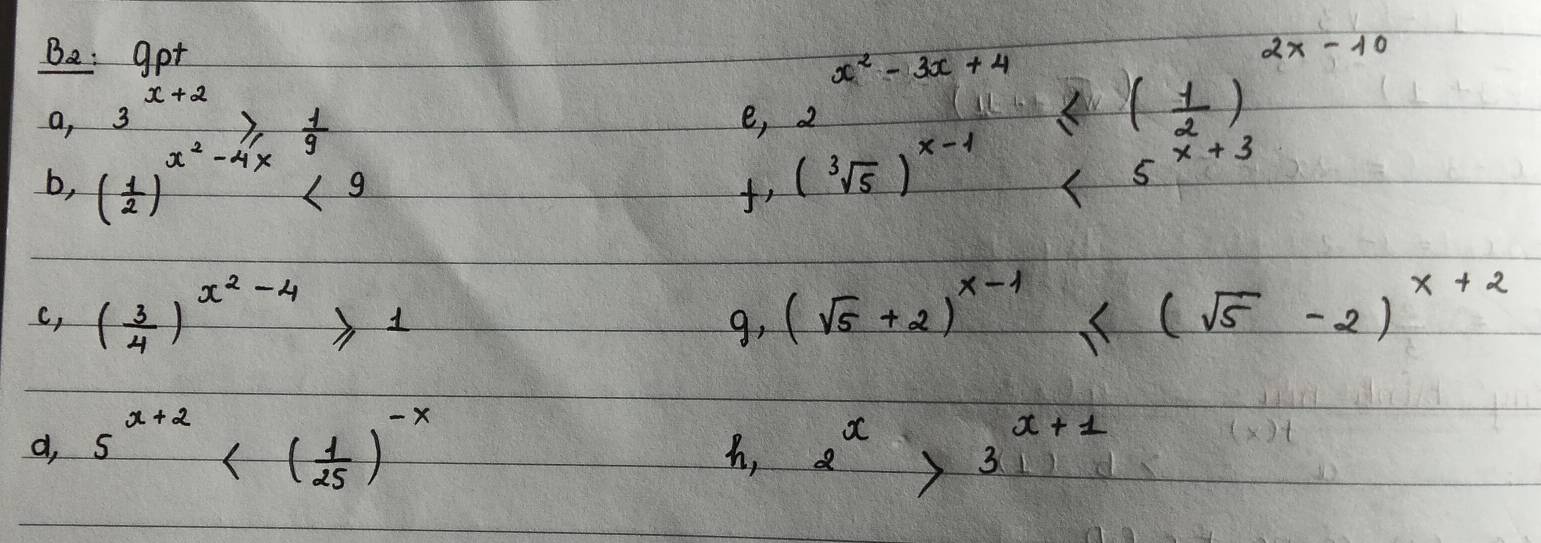 B2: gpt
a, 3^(x+2) ⩾ 1/9
b, (1/2)^(x²-4x) < 9
c, (3/4)^(x²-4) ⩾ 1
d, 5^(x+2) < (1/25)^(-x)
e, 2^(x²-3x+4) ⩽ (1/2)^(2x-10)
f, (³√5)^(x-1) < 5^(x+3)
g, (√5+2)^(x-1) ⩽ (√5-2)^(x+2)
h, 2^x > 3^(x+1)